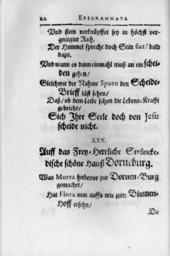 22 EPIGRAMMATA
Und stets verknüpffet sey in höchst ver-
gnügter Ruh.
Der Himmel spreche doch Sein fiat! bald
dazu,
Und wann es dann einmahl muß an ein schei-
den gehen/
Gleichwie der Nahme Spann den Scheide-
Brieff läst sehen/
Daß/ ob dem Leibe schon die Lebens-Krafft
gebricht/
Sich Ihre Seele doch von Jesu
scheide nicht.
XXV.
Auff das Frey-Herrliche
dische schöne Hauß Dorneburg.
Was Morta hiebevor zur Dornen-Burg
gemachet/
Hat Flora nun auffs neu zum Blumen-
Hoff ersehn/
Da